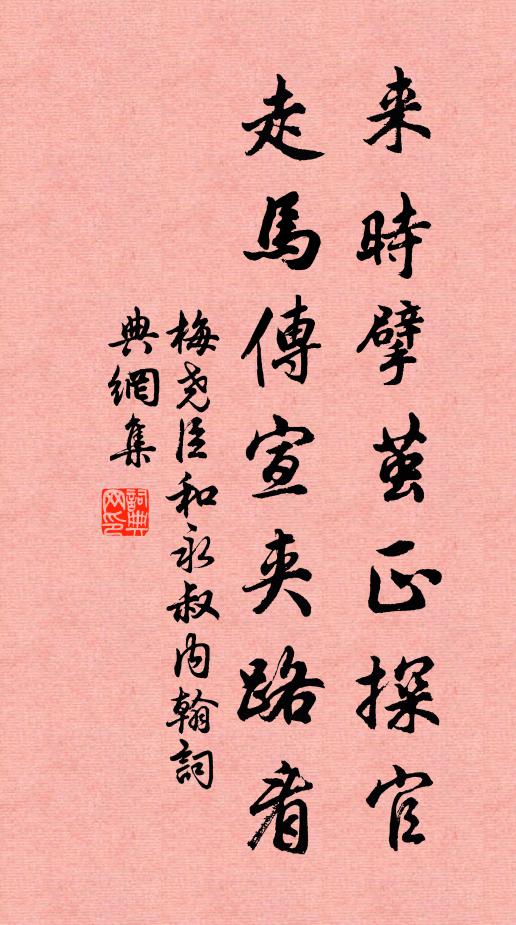 来時擘茧正探官
走馬傳宣夾路看
梅尧臣和永叔内翰詞
典網集
詞典网印